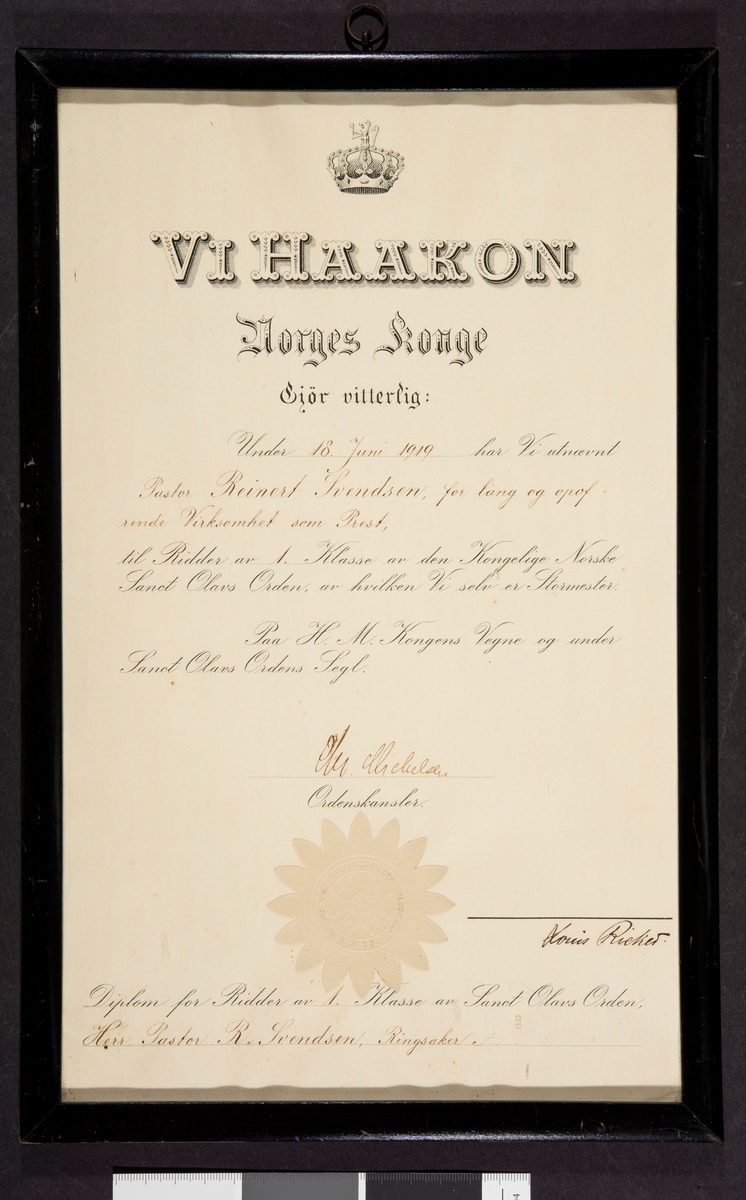 VI HAAKON
Norges Konge
Gjör vitterlig:
Under 18. Juni 1919 har Vi utnævnt
Pastor Reinert Svendsen, for lang og opof-
rende Virksomhet som Prest,
til Ridder av 1. Klasse av den Kongelige Norske
Sanct Olavs Orden, av hvilken Vi selv er Stormester.
Paa H. M. Kongens Vegne og under
Sanct Olavs Ordens Segl.
Chr. Michelsen
Ordenskansler.
Diplom for Ridder av 1. Klasse av Sanct Olavs Orden,
Herr Pastor R. Svendsen, Ringsaker.